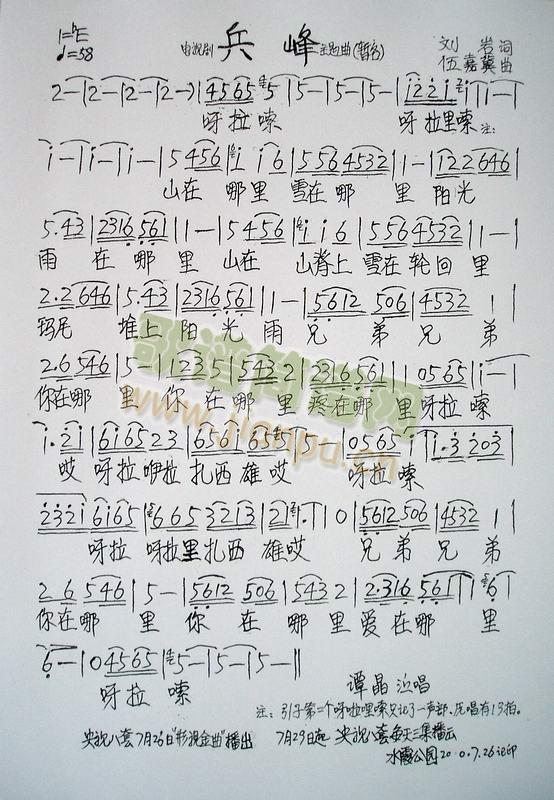 1=♭E
♩=58
电视剧 兵峰 主题曲(暂名)
刘岩 词
伍嘉冀 曲
2－|2－|2－|2－|4565 5|5－|5－|5－|1221 1|1－|
呀拉嗦 呀拉里嗦 注:
i－|i－|i－|5 456|i i6|556 4532|1－|122 646|
山在 哪里 雪在哪 里 阳光
5. 43|2316 561|1－|5 456|i i6|556 4532|1－|
雨 在哪里 山在 山脊上 雪在轮回 里
2.2 646|5. 43|2316 561|1－|5612 506|4532 1 1|
玛尼 堆上 阳光 雨 兄弟兄 弟
2.6 546|5－|1235|543 2|2316 561|1 0565|i－|
你在哪 里 你在哪里 疼在哪 里 呀拉 嗦
i. 2i|6165 23|6551|
哎 呀拉咿拉 扎西 雄哎 呀拉 嗦
2321 6165|665 3213|2 1|1 0|5612 506|4532 1 1|
呀拉 呀拉里扎西 雄哎 兄弟兄 弟
2 6 546|5－|5612 506|543 2|2.316 561|6|
你在哪 里 你在哪里 爱在哪 里
6－|0 4565|5－|5－|5－||
呀拉 嗦
谭晶 演唱
注: 引子第二个呀拉里嗦只记了一声部、原唱有13拍。
央视八套7月26日"影视金曲"播出 7月29日起 央视八套每天三集播出
水霞公园2010.7.26记印
歌谱简谱网
www.jianpu.cn